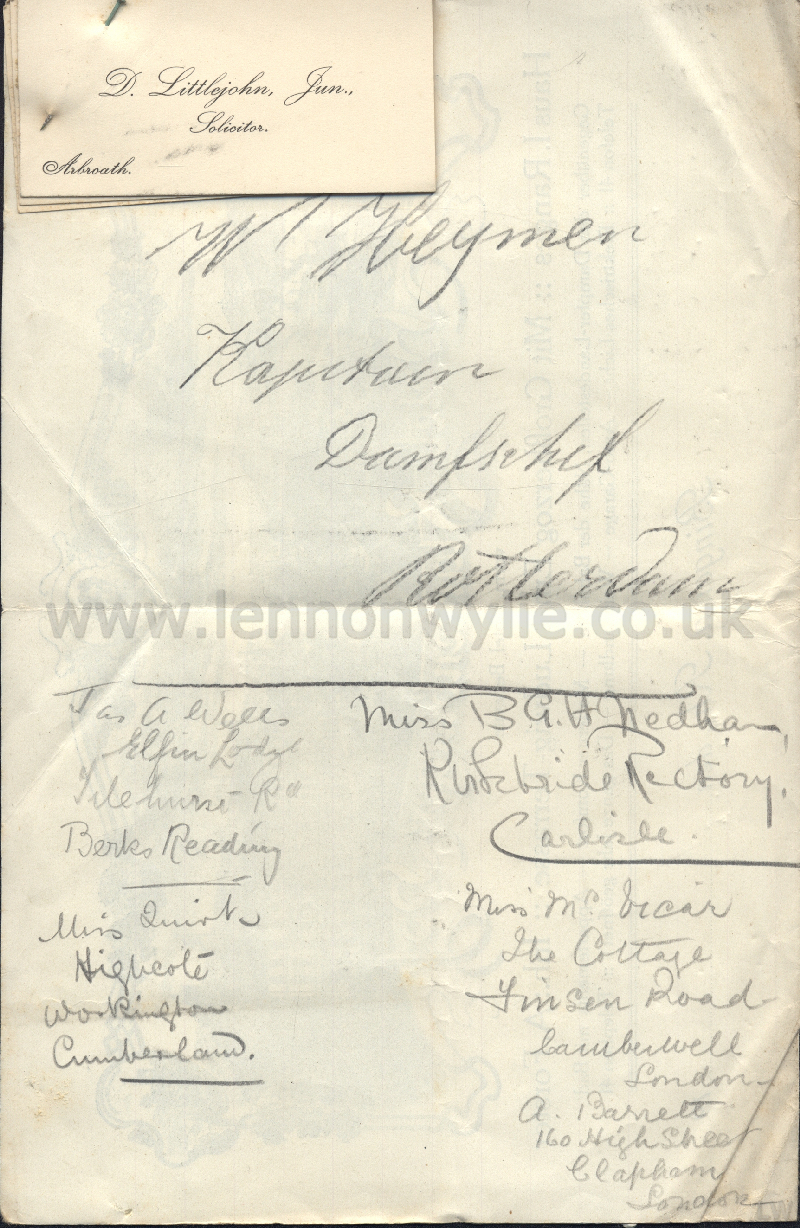 D. Littlejohn, Jun.,
Solicitor.
Arbroath.
W Heymen
Kapitein
Damfschif
Rotterdam
www.lennonwylie.co.uk
Jas A Wells
Elfin Lodge
Tilehurst Rd
Berks Reading
Miss Quirk
Highcote
Workington
Cumberland.
Miss B G. H Nedham,
Kirkbride Rectory,
Carlisle.
Miss Mc Vicar
The Cottage
Finsen Road
Camberwell
London
A. Barrett
160 High Street
Clapham
London